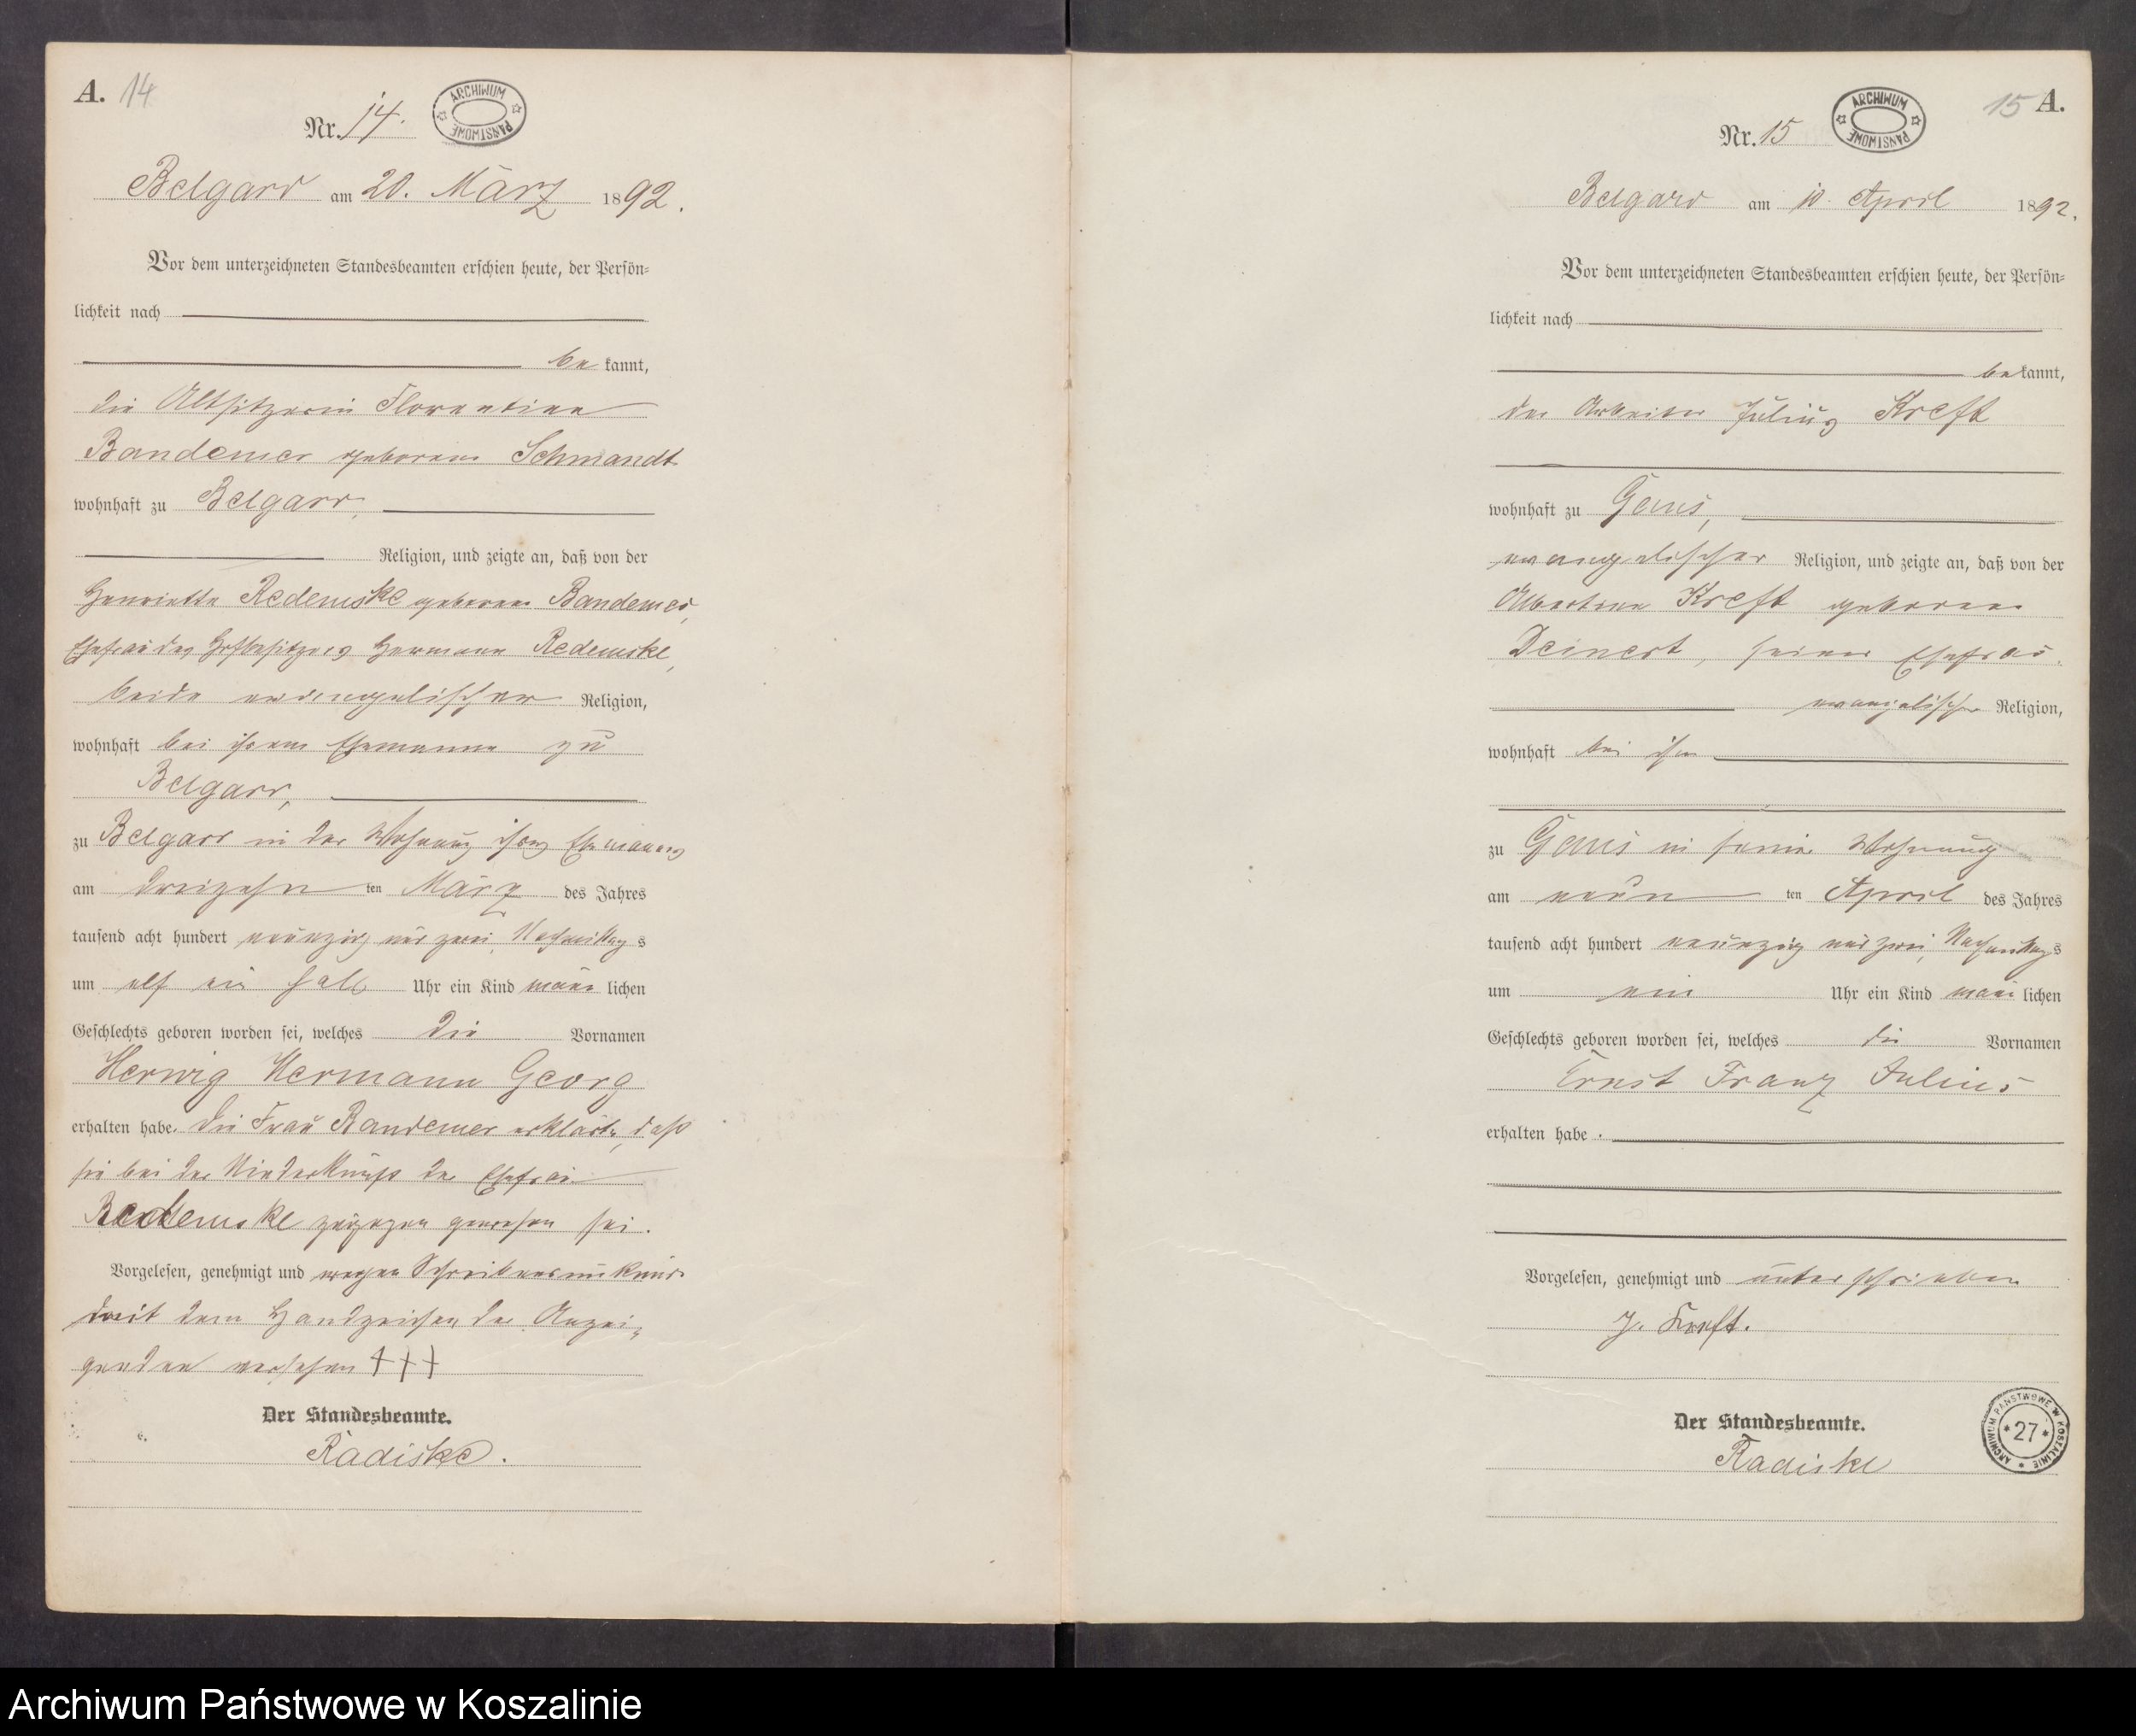 A. 14
Nr. 14.
ARCHIWUM PAŃSTWOWE
Belgard am 20. März 1892.
Vor dem unterzeichneten Standesbeamten erschien heute, der Persön-
lichkeit nach
be kannt,
die Altsitzerin Florentine
Bandemer geborene Schmandt
wohnhaft zu Belgard,
Religion, und zeigte an, daß von der
Henriette Redemske geborene Bandemer,
Ehefrau des Hofbesitzers Hermann Redemske,
beide evangelischer Religion,
wohnhaft bei ihrem Ehemanne zu
Belgard,
zu Belgard in der Wohnung ihres Ehemannes
am dreizehn ten März des Jahres
tausend acht hundert neunzig und zwei, Nachmittags
um elf ein halb Uhr ein Kind männ lichen
Geschlechts geboren worden sei, welches die Vornamen
Herwig Hermann Georg
erhalten habe. Die Frau Bandemer erklärte, daß
sie bei der Niederkunft der Ehefrau
Redemske zugegen gewesen sei.
Vorgelesen, genehmigt und wegen Schreibensunkunde
mit dem Handzeichen der Anzei-
genden versehen +++
Der Standesbeamte.
Radiske.
15 A.
Nr. 15
ARCHIWUM PAŃSTWOWE
Belgard am 10. April 1892.
Vor dem unterzeichneten Standesbeamten erschien heute, der Persön-
lichkeit nach
be kannt,
der Arbeiter Julius Kreft
wohnhaft zu Gans,
evangelischer Religion, und zeigte an, daß von der
Albertine Kreft geborene
Deinert, seiner Ehefrau,
evangelischer Religion,
wohnhaft bei ihm
zu Gans in seiner Wohnung
am neun ten April des Jahres
tausend acht hundert neunzig und zwei, Nachmittags
um ein Uhr ein Kind männ lichen
Geschlechts geboren worden sei, welches die Vornamen
Ernst Franz Julius
erhalten habe.
Vorgelesen, genehmigt und unterschrieben
J. Kreft.
Der Standesbeamte.
Radiske
ARCHIWUM PAŃSTWOWE W KOSZALINIE * 27 *
Archiwum Państwowe w Koszalinie